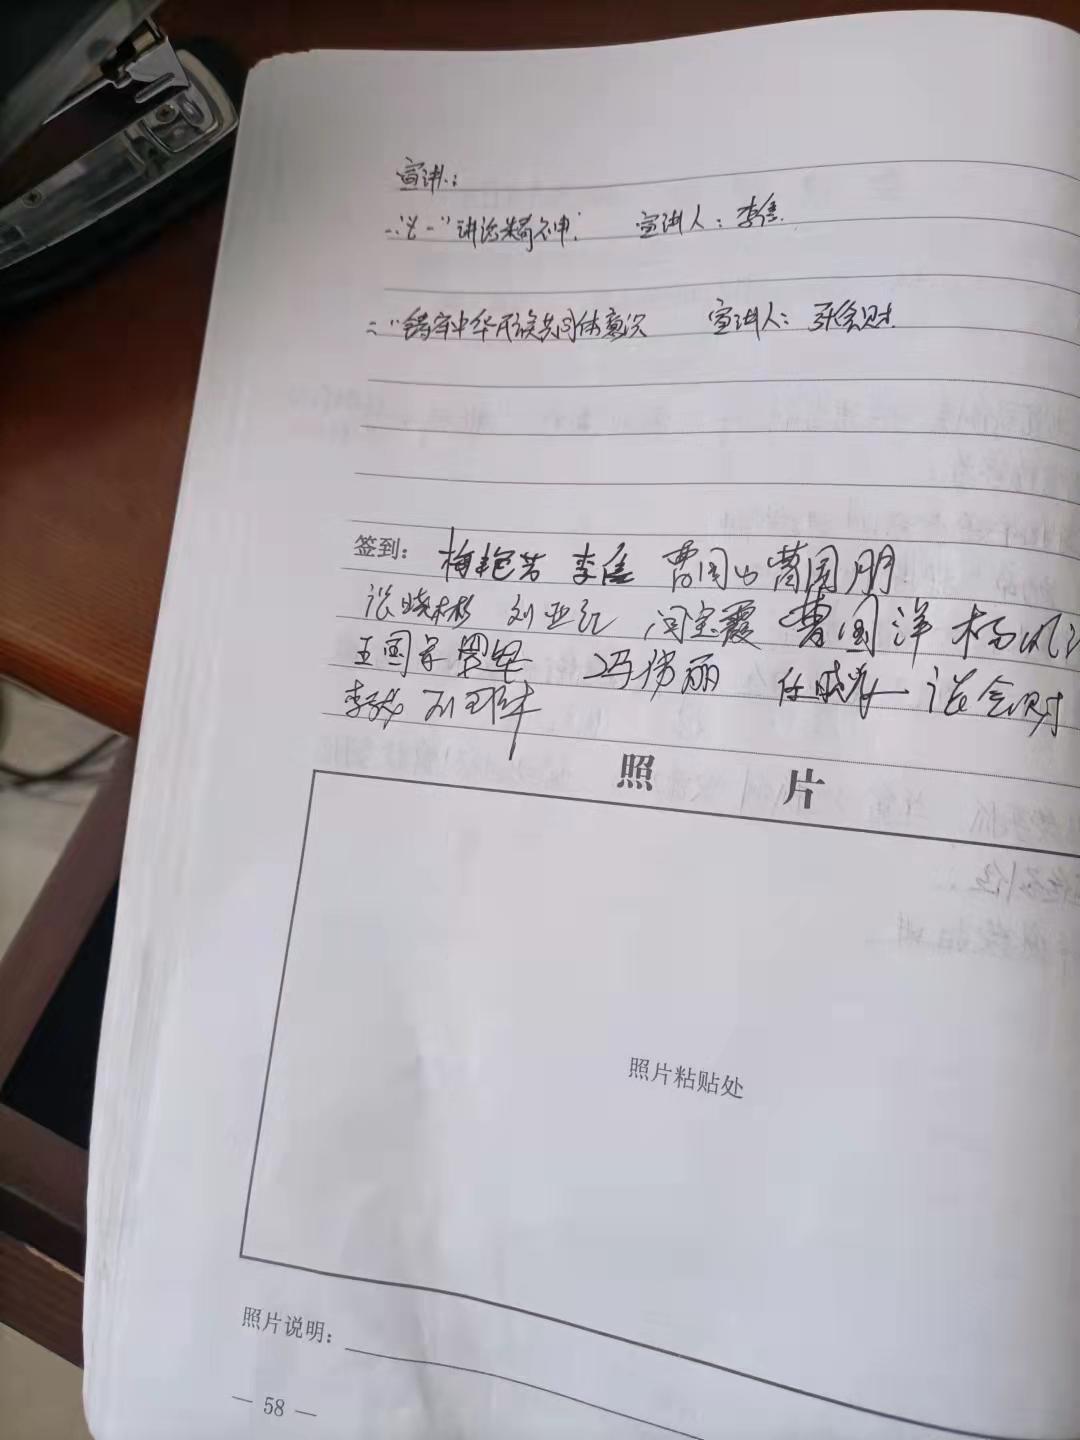 宣讲:
一:"七一"讲话精神. 宣讲人: 李佳
二:"铸牢中华民族共同体意识 宣讲人: 张会财
签到: 梅艳芳 李佳 曹国山 曹国朋
张晓林 刘亚红 闫宝霞 曹国洋 杨凤
王国军 冯伟丽 任晓 张会财
李
照 片
照片粘贴处
照片说明:
— 58 —